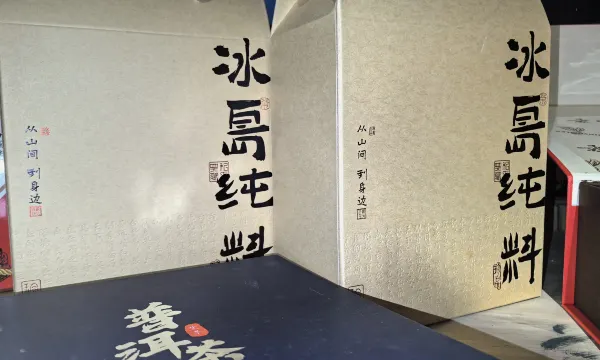 冰島纯料
从山间 到身边
冰島纯料
从山间 到身边
普洱茶